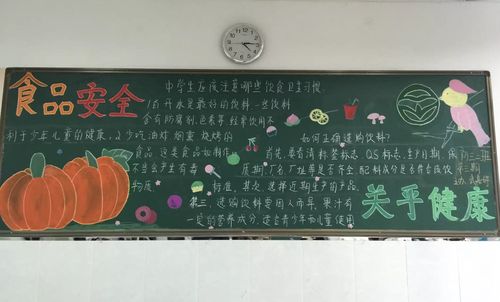 食品安全
中学生应该注意哪些饮食卫生习惯
1白开水是最好的饮料一些饮料
含有防腐剂、色素等,经常饮用不
利于少年儿童的健康。2少吃油炸、烟熏、烧烤的
食品,这类食品如制作
不当会产生有毒
物质
如何正确选购饮料?
首先,要看清标签标志,QS标志,生产日期,保
质期,厂名厂址等是否齐全,配料成分是否符合
标准,其次,选择近期生产的产品。
第三,选购饮料要因人而异,果汁有
一定的营养成分,适合青少年和儿童使用
关乎健康